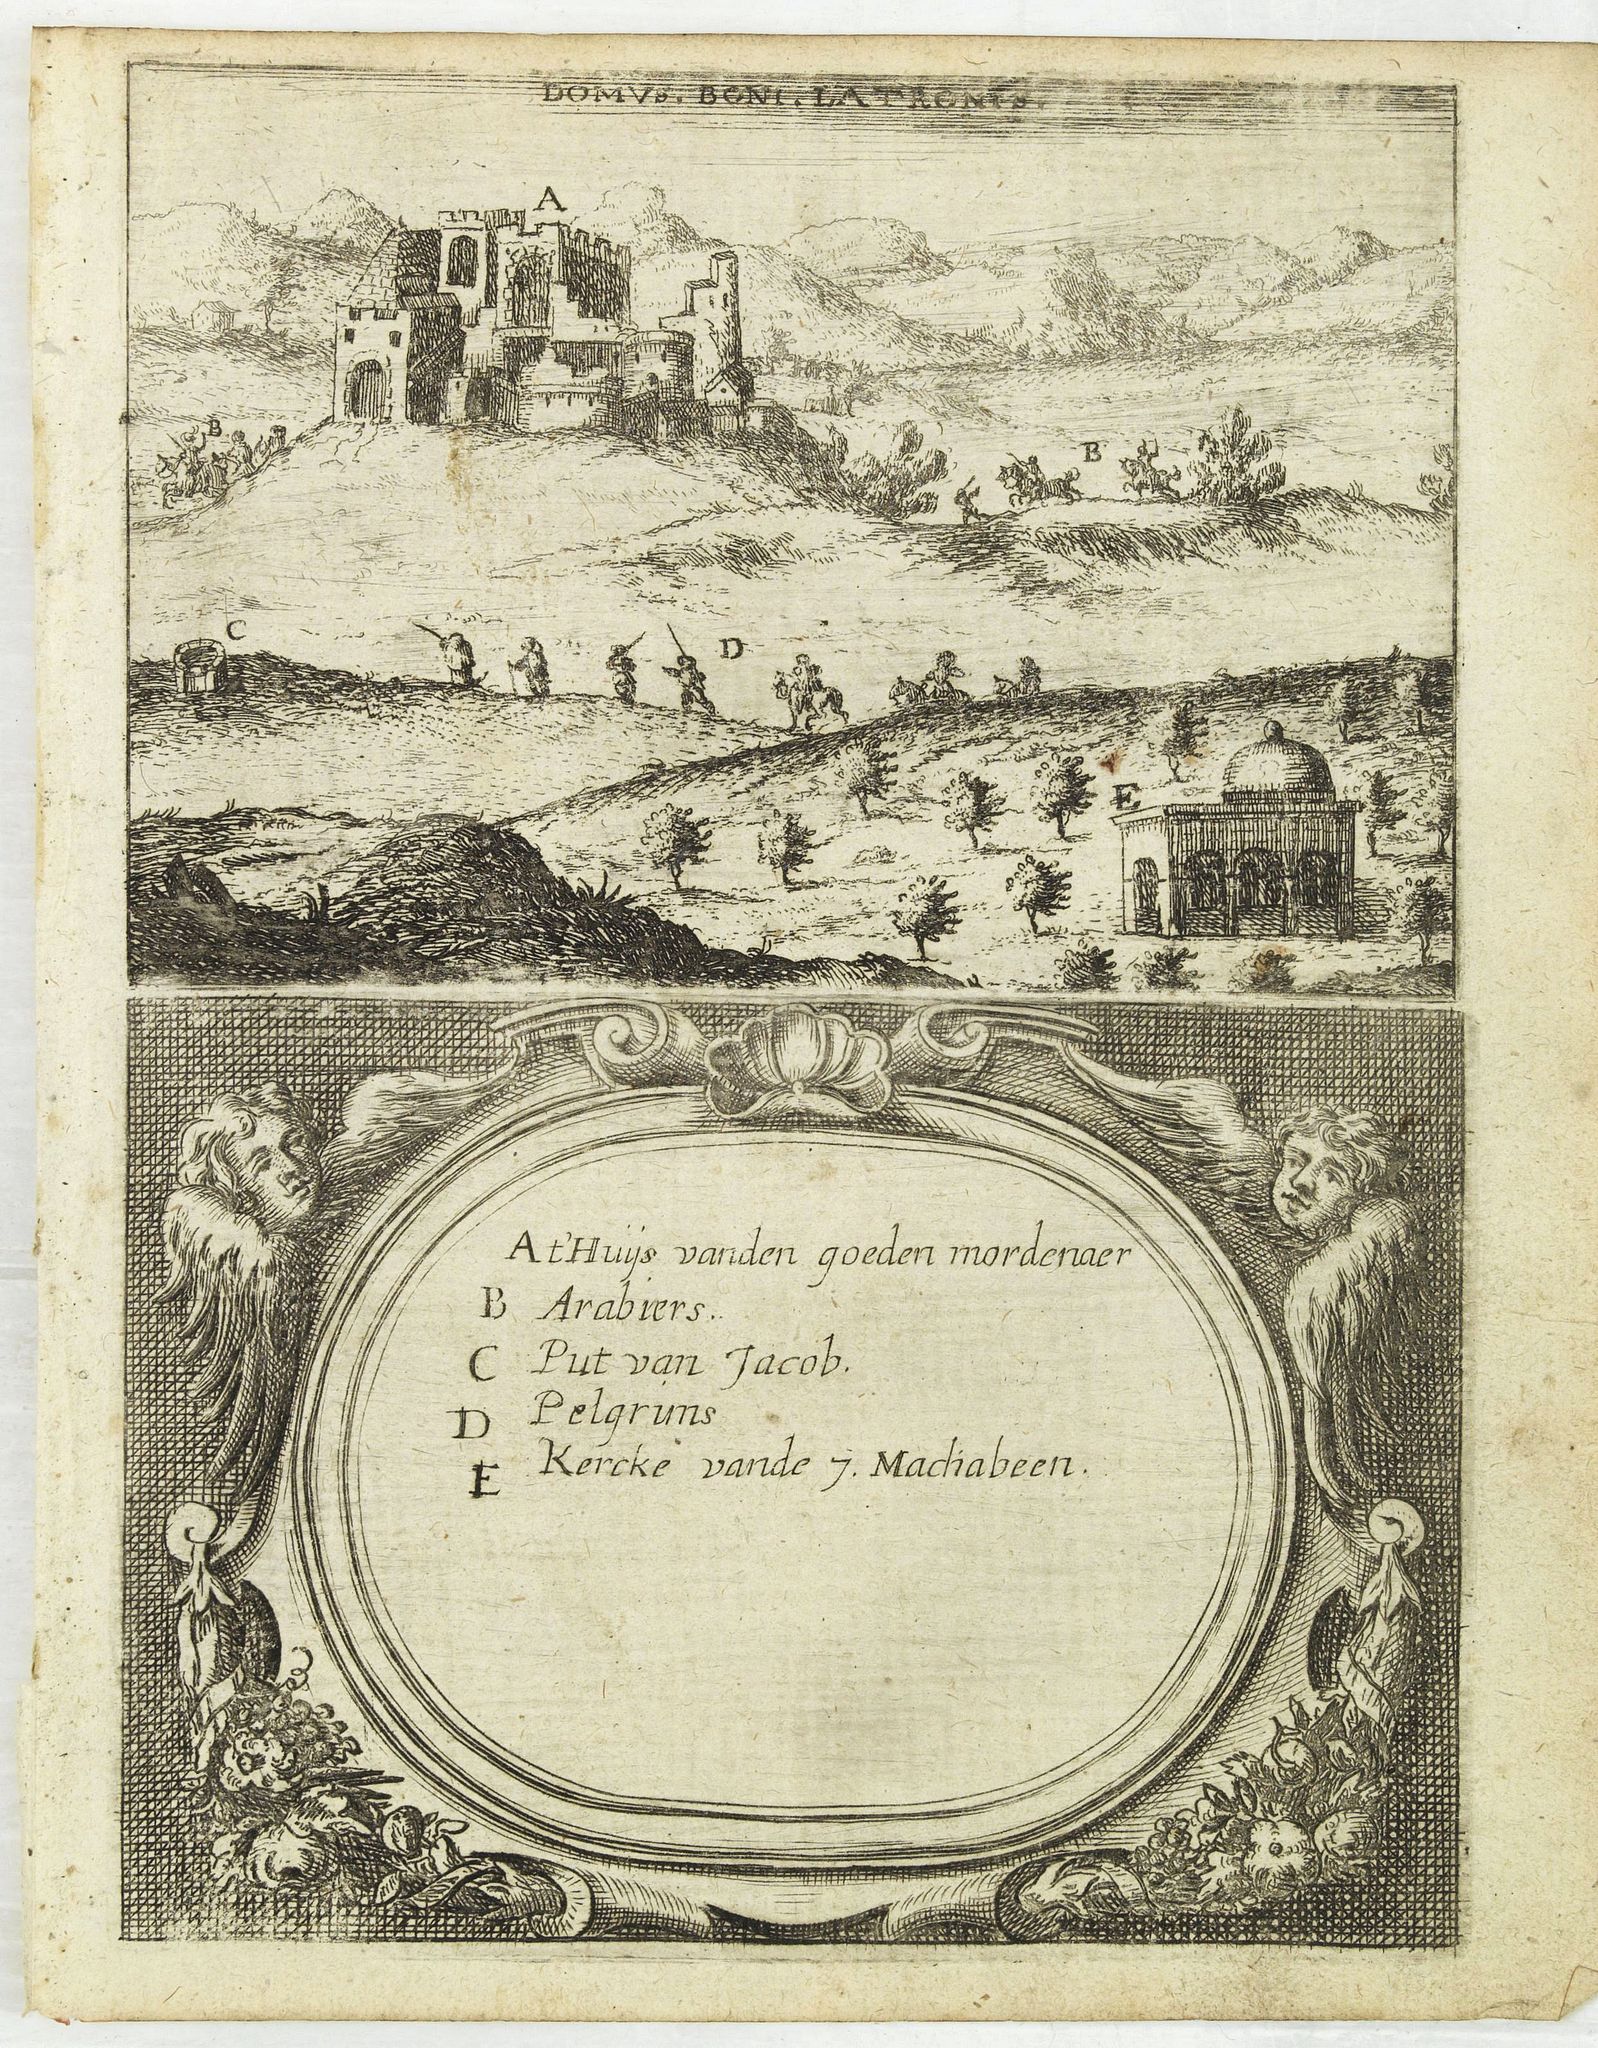 DOMVS. BONI. LATRONIS.
A
B
B
C
D
E
A t'Huijs vanden goeden mordenaer
B Arabiers.
C Put van Jacob.
D Pelgrims
E Kercke vande 7. Machabeen.